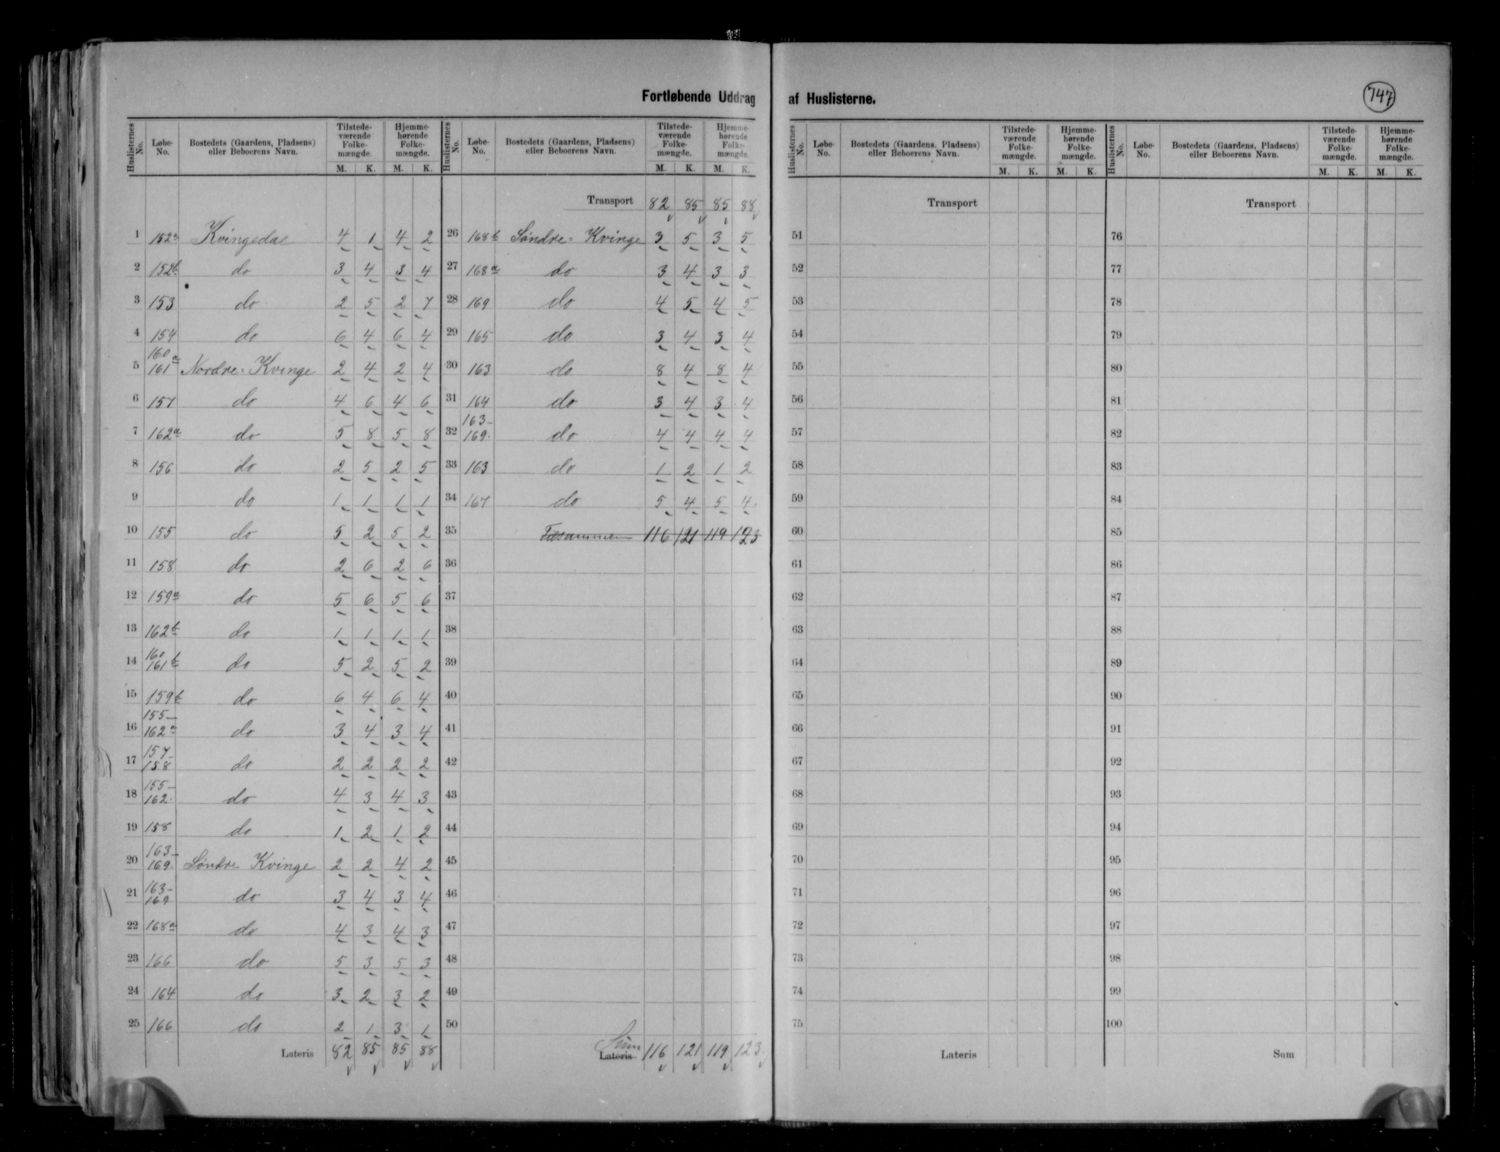 Fortløbende Uddrag af Huslisterne.
747
Huslisternes No. Løbe-No. Bostedets (Gaardens, Pladsens) eller Beboerens Navn. Tilstedeværende Folkemængde. M. K. Hjemmehørende Folkemængde. M. K.
1 152a Kvingedal 4 1 4 2
2 152b do 3 4 3 4
3 153 do 2 5 2 7
4 154 do 6 4 6 4
5 160 161 a Nordre-Kvinge 2 4 2 4
6 157 do 4 6 4 6
7 162a do 5 8 5 8
8 156 do 2 5 2 5
9 do 1 1 1 1
10 155 do 5 2 5 2
11 158 do 2 6 2 6
12 159a do 5 6 5 6
13 162b do 1 1 1 1
14 160 161b do 5 2 5 2
15 159b do 6 4 6 4
16 155- 162a do 3 4 3 4
17 157- 158 do 2 2 2 2
18 155- 162. do 4 3 4 3
19 158 do 1 2 1 2
20 163- 169. Søndre Kvinge 2 2 4 2
21 163- 169 do 3 4 3 4
22 168a do 4 3 4 3
23 166 do 5 3 5 3
24 164 do 3 2 3 2
25 166 do 2 1 3 1
Lateris 82 85 85 88
Huslisternes No. Løbe-No. Bostedets (Gaardens, Pladsens) eller Beboerens Navn. Tilstedeværende Folkemængde. M. K. Hjemmehørende Folkemængde. M. K.
Transport 82 85 85 88
26 168b Søndre-Kvinge 3 5 3 5
27 168a do 3 4 3 3
28 169 do 4 5 4 5
29 165 do 3 4 3 4
30 163 do 8 4 8 4
31 164 do 3 4 3 4
32 163- 169. do 4 4 4 4
33 163 do 1 2 1 2
34 167 do 5 4 5 4
35 Tilsammen 116 121 119 123
36
37
38
39
40
41
42
43
44
45
46
47
48
49
50
Sum
Lateris 116 121 119 123
Huslisternes No. Løbe-No. Bostedets (Gaardens, Pladsens) eller Beboerens Navn. Tilstedeværende Folkemængde. M. K. Hjemmehørende Folkemængde. M. K.
Transport
51
52
53
54
55
56
57
58
59
60
61
62
63
64
65
66
67
68
69
70
71
72
73
74
75
Lateris
Huslisternes No. Løbe-No. Bostedets (Gaardens, Pladsens) eller Beboerens Navn. Tilstedeværende Folkemængde. M. K. Hjemmehørende Folkemængde. M. K.
Transport
76
77
78
79
80
81
82
83
84
85
86
87
88
89
90
91
92
93
94
95
96
97
98
99
100
Sum